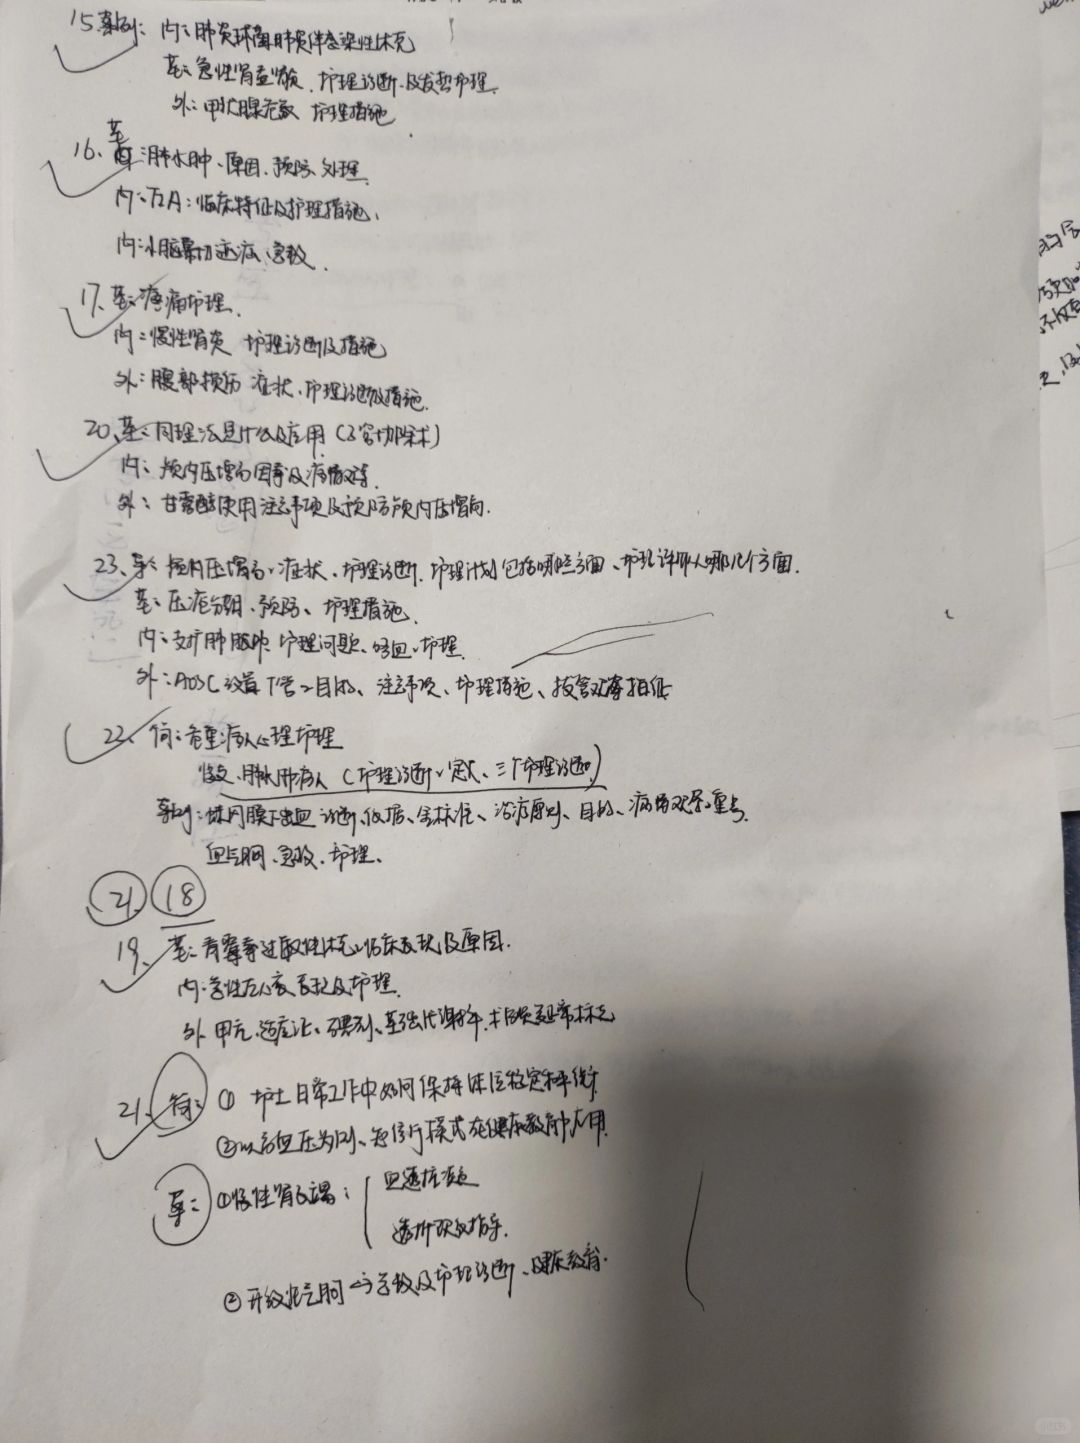 15. 案例: 内: 肺炎球菌肺炎伴感染性休克
基: 急性肾盂肾炎、护理诊断、及发热护理
外: 甲状腺危象 护理措施
16. 基: 肺水肿、原因、预防、处理
内: TIA: 临床特征及护理措施、
内: 小脑幕切迹疝、急救、
17. 基: 疼痛护理、
内: 慢性肾炎 护理诊断及措施
外: 腹部损伤 症状、护理诊断及措施、
20. 基: 同理心是什么及应用(子宫切除术)
内: 颅内压增高因素及病情观察
外: 甘露醇使用注意事项及预防颅内压增高.
23. 案: 颅内压增高: 症状、护理诊断、护理计划包括哪些方面、护理评价从哪几个方面.
基: 压疮分期、预防、护理措施.
内: 支扩 护理问题、咯血、护理.
外: AOSC 设置T管: 目的、注意事项、护理措施、拔管观察指征
22. 简: 危重病人心理护理
(护理诊断: 定义、三个护理诊断)
案例: 蛛网膜下出血 诊断、依据、金标准、治疗原则、目的、病情观察重点.
血气胸、急救、护理、
21 18
19. 基: 青霉素过敏性休克: 临床表现及原因.
内: 急性左心衰 表现及护理.
外 甲亢、适应证、碘剂、基础代谢率.
21. 简: ① 护士日常工作中如何保持体位稳定和平衡
② 以高血压为例、知信行模式在健康教育中应用.
案: ① 慢性肾衰竭:
血透
透析 指导.
② 开放性气胸 → 急救及护理诊断、健康教育.